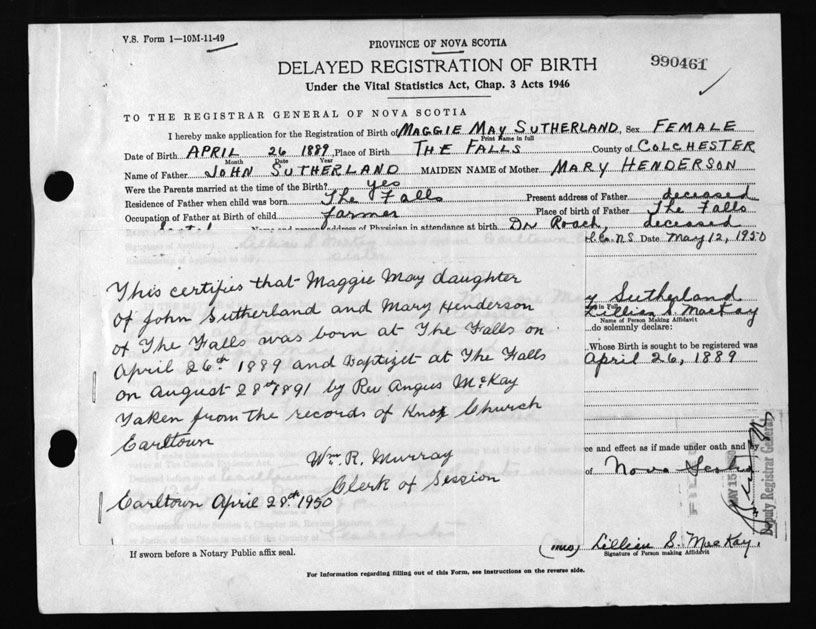 V.S. Form 1—10M-11-49
PROVINCE OF NOVA SCOTIA
DELAYED REGISTRATION OF BIRTH
990461
Under the Vital Statistics Act, Chap. 3 Acts 1946
TO THE REGISTRAR GENERAL OF NOVA SCOTIA
I hereby make application for the Registration of Birth of MAGGIE MAY SUTHERLAND, Sex FEMALE
Print Name in full
Date of Birth APRIL 26 1889 Place of Birth THE FALLS County of COLCHESTER
Month Date Year
Name of Father JOHN SUTHERLAND MAIDEN NAME of Mother MARY HENDERSON
Were the Parents married at the time of the Birth? yes
Residence of Father when child was born The Falls Present address of Father deceased
Occupation of Father at Birth of child farmer Place of birth of Father The Falls
Name and present address of Physician in attendance at birth Dr Roach, deceased
N.S. Date May 12, 1950
This certifies that Maggie May daughter
of John Sutherland and Mary Henderson
of The Falls was born at The Falls on
April 26th 1889 and Baptizet at The Falls
on august 28th 1891 by Rev Angus McKay
Taken from the records of Knox Church
Earltown
Wm. R. Murray
Clerk of Session
Earltown April 28th 1950
y Sutherland
in Full
Lillian S. MacKay
Name of Person Making Affidavit
do solemnly declare:
Whose Birth is sought to be registered was
April 26, 1889
ce and effect as if made under oath and by
of Nova Scotia
FILED
MAY 15 1950
Deputy Registrar General
(Mrs) Lillian S. MacKay.
Signature of Person making Affidavit
If sworn before a Notary Public affix seal.
For Information regarding filling out of this Form, see instructions on the reverse side.